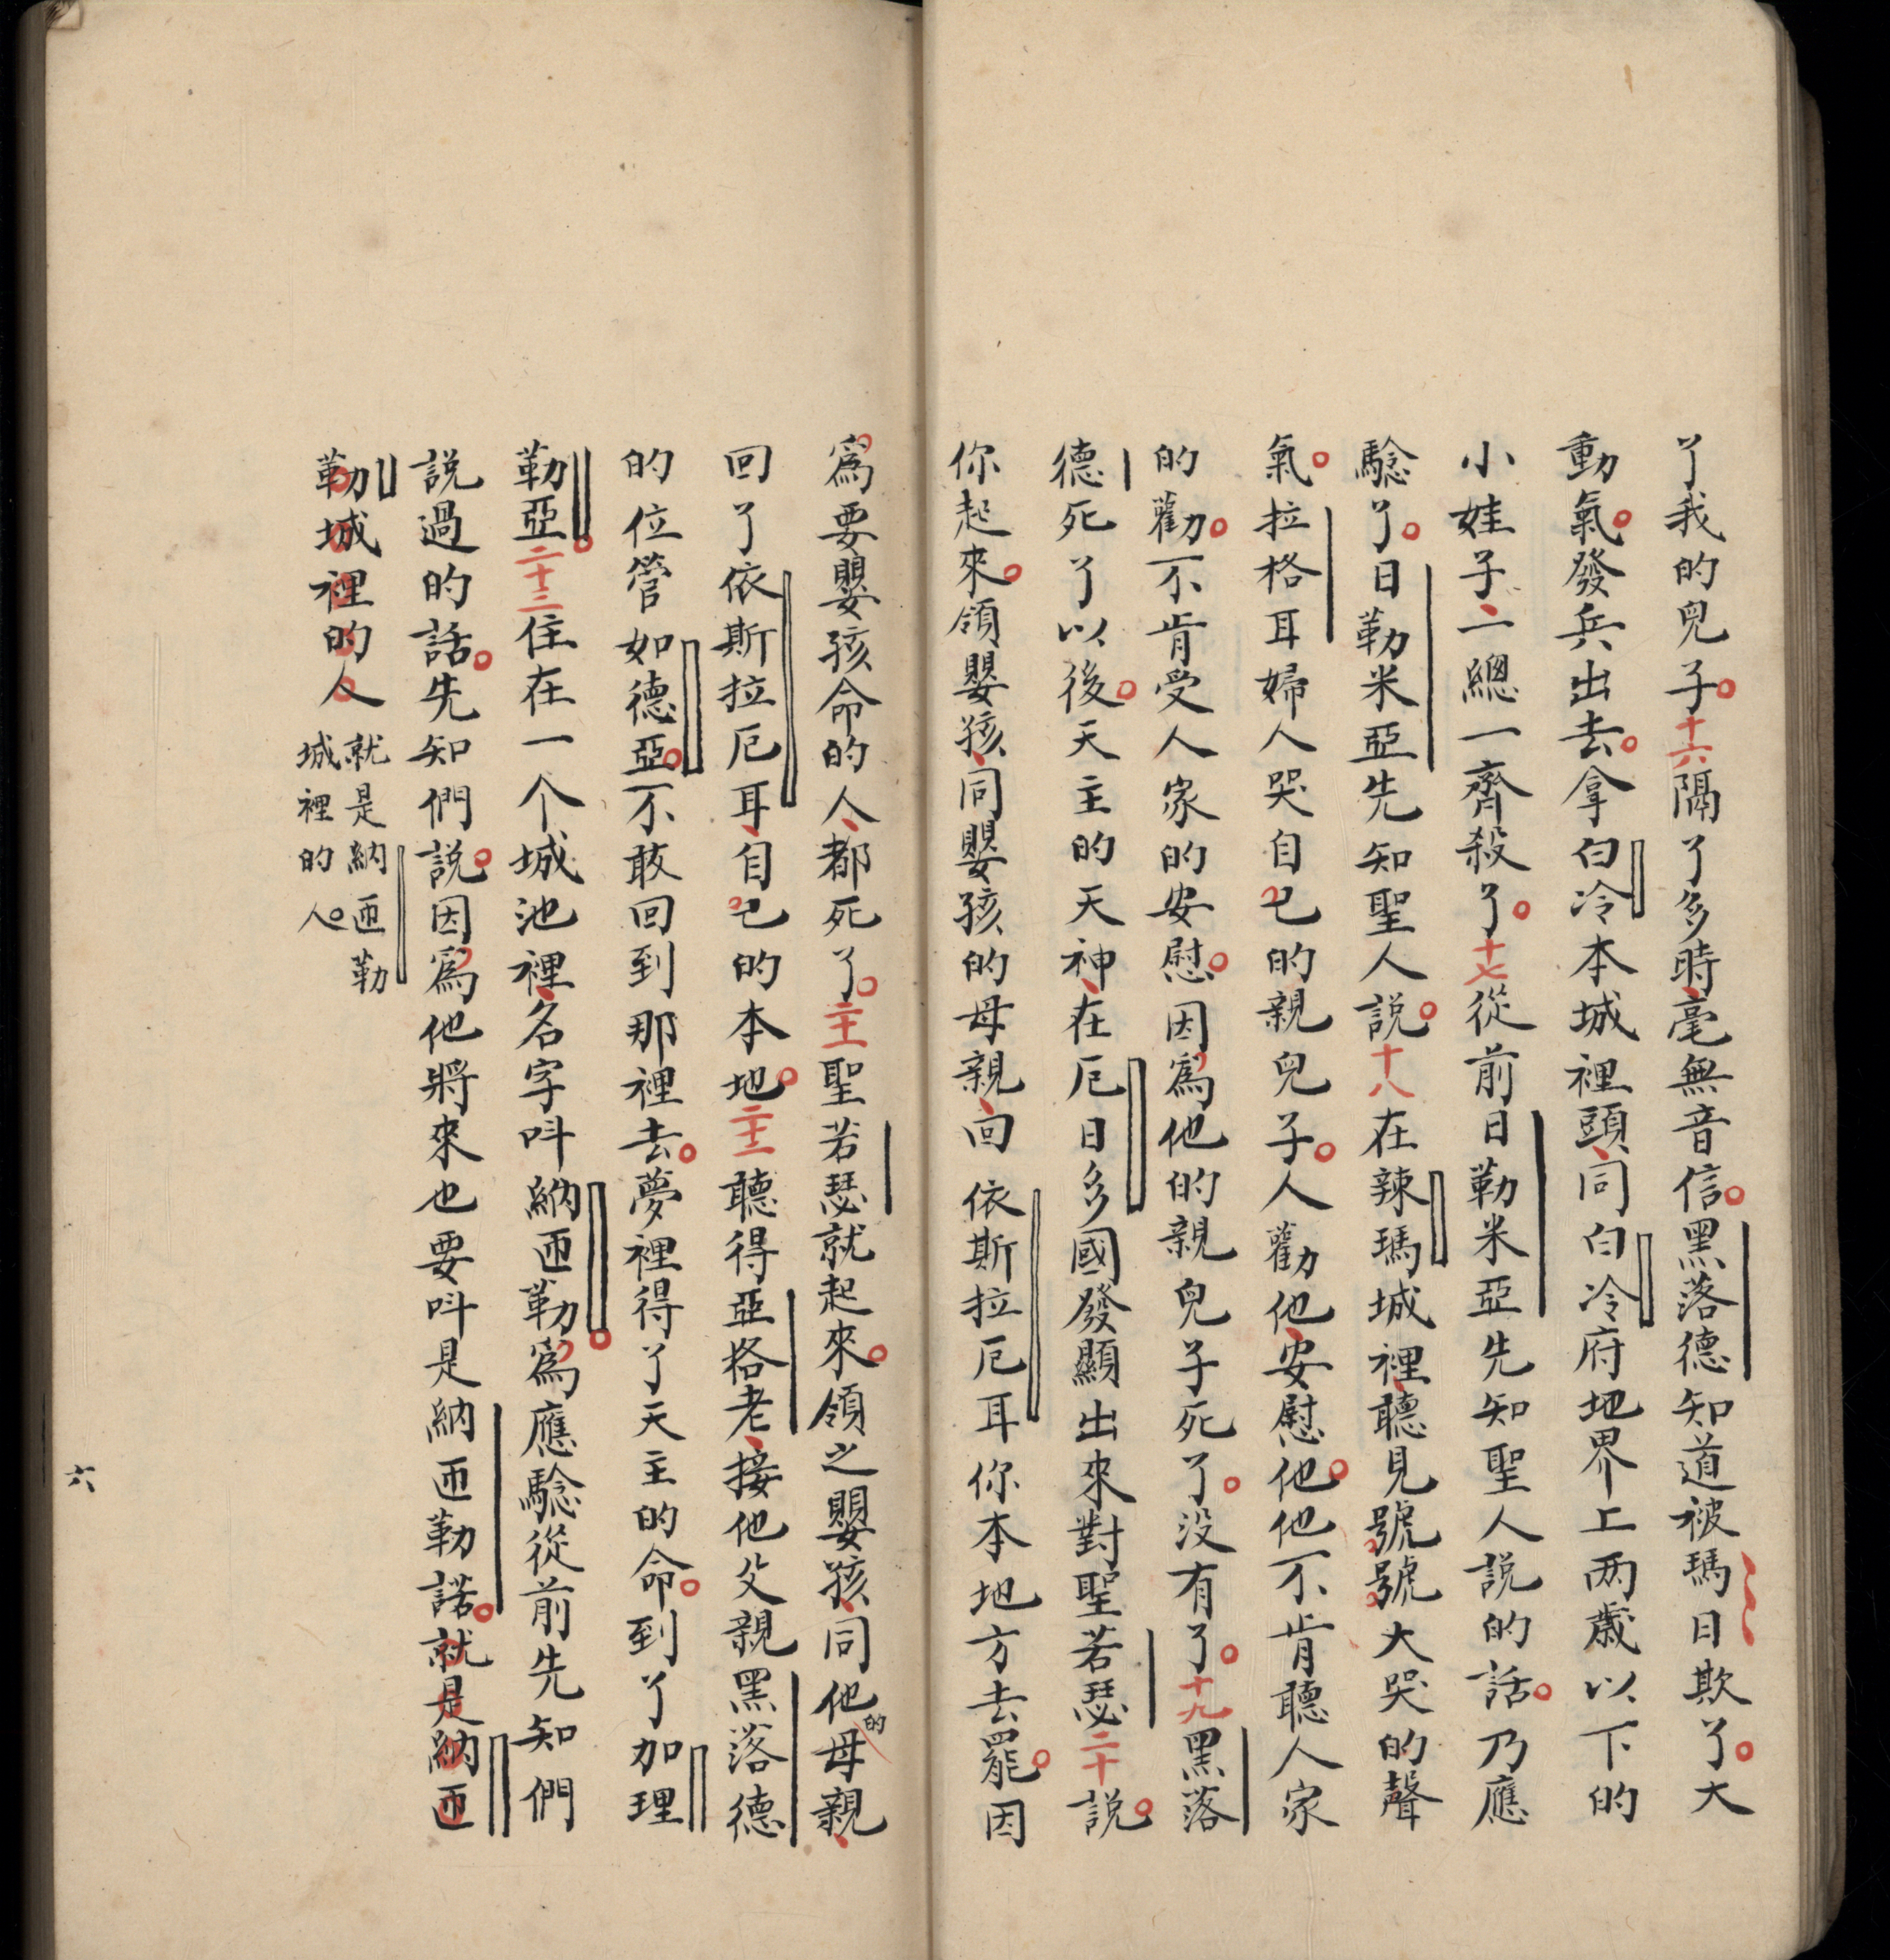 了我的兒子。十六隔了多時、毫無音信。黑落德知道被瑪日欺了。大
動氣。發兵出去。拿白冷本城裡頭、同白冷府地界上两歲以下的
小娃子、一總一齊殺了。十七從前日勒米亞先知聖人說的話。乃應
騐了。日勒米亞先知聖人說。十八在辣瑪城裡、聽見號號大哭的聲
氣。拉格耳婦人哭自己的親兒子。人勸他、安慰他。他不肯聽人家
的勸。不肯受人家的安慰。因爲他的親兒子死了。没有了。十九黑落
德死了以後。天主的天神、在厄日多國發顯出來對聖若瑟二十說。
你起來。領嬰孩、同嬰孩的母親、回依斯拉厄耳你本地方去罷。因
爲要嬰孩命的人、都死了。二十一聖若瑟就起來。領之嬰孩、同他的母親、
回了依斯拉厄耳、自己的本地。二十二聽得亞格老、接他父親黑落德
的位管如德亞。不敢回到那裡去。夢裡得了天主的命。到了加理
勒亞。二十三住在一个城池裡、名字呌納匝勒。爲應騐從前先知們
說過的話。先知們說。因爲他將來也要呌是納匝勒諾。就是納匝
勒城裡的人就是納匝勒
城裡的人。
六